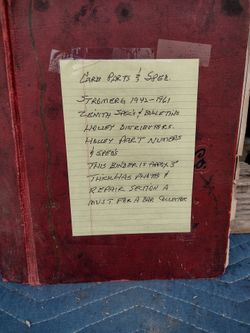 CARB PARTS & SPEC.
STROMBERG 1942-1961
ZENITH SPEC'S & BULLETINS
HOLLEY DISTRIBUTERS.
HOLLEY PART NUMERS
& SPEC'S
THIS BINDER IS APPOX 3"
THICK HAS PHOTOS &
REPAIR SECTION A
MUST FOR A
COLLECTOR
Co